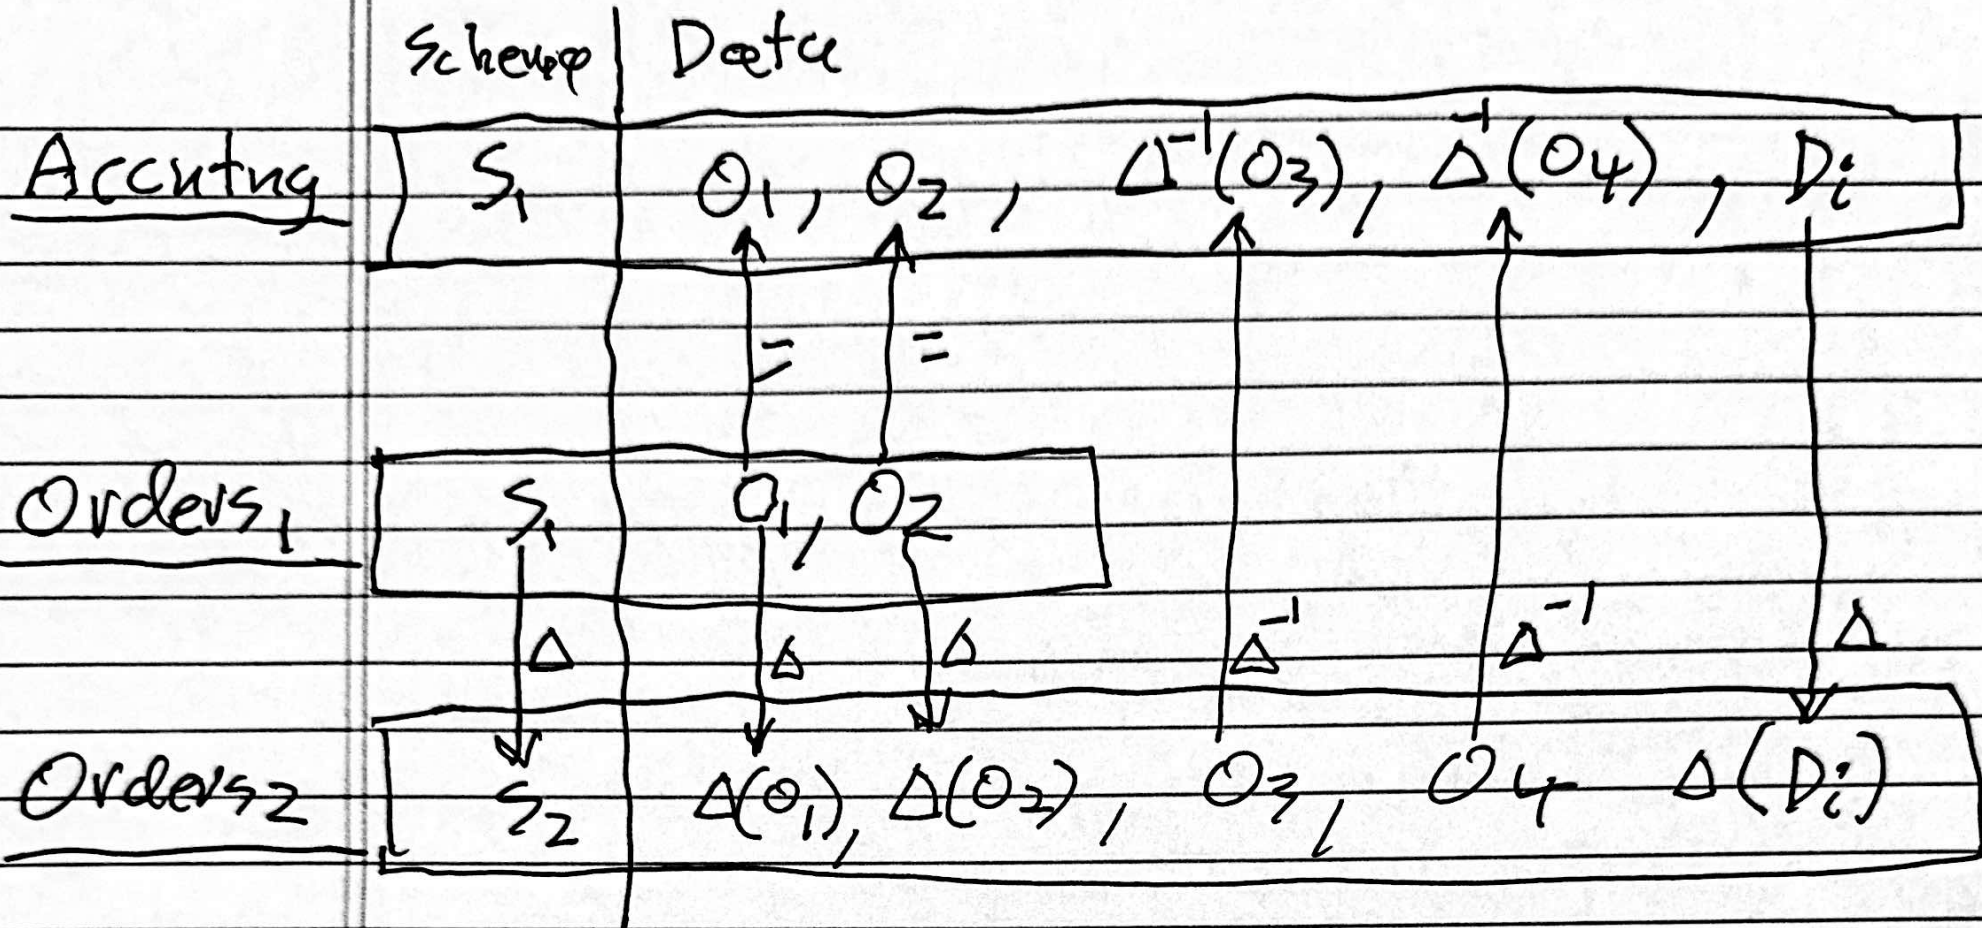 Schema Data
Accntng S₁ O₁, O₂, Δ⁻¹(O3), Δ⁻¹(O4), Di
= =
Orders₁ S₁ O₁, O₂
Δ Δ Δ Δ⁻¹ Δ⁻¹ Δ
Orders₂ S₂ Δ(O₁), Δ(O₂), O3, O4 Δ(Di)